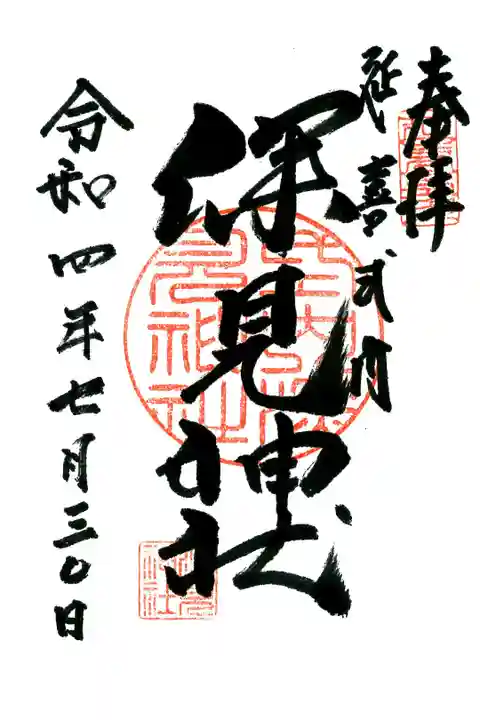 奉拝
延喜式内
保見神社
令和四年七月三〇日